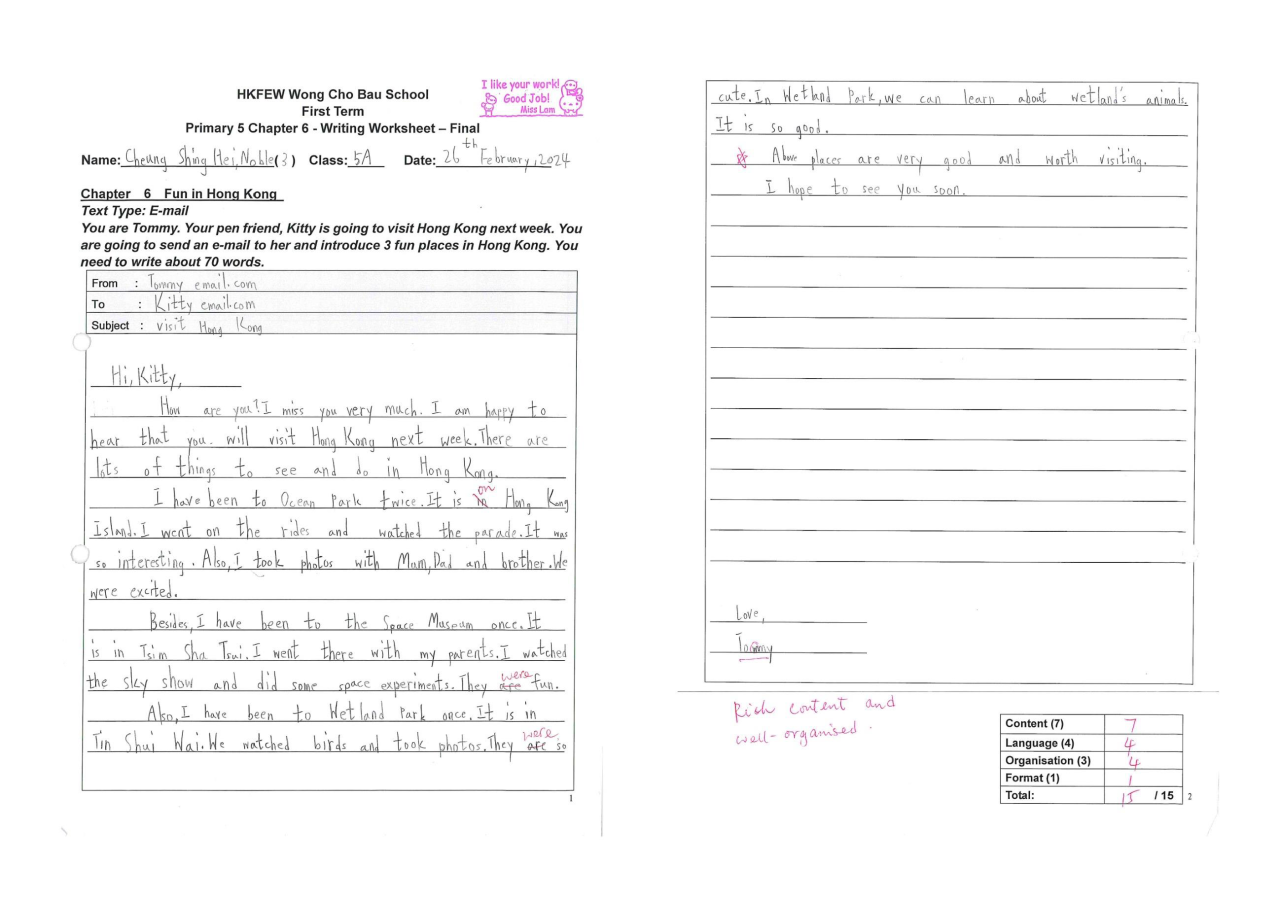 HKFEW Wong Cho Bau School
First Term
Primary 5 Chapter 6 - Writing Worksheet – Final
I like your work!
Good Job!
Miss Lam
Name: Cheung Shing Hei, Noble (3) Class: 5A Date: 26th February, 2024
Chapter 6 Fun in Hong Kong
Text Type: E-mail
You are Tommy. Your pen friend, Kitty is going to visit Hong Kong next week. You
are going to send an e-mail to her and introduce 3 fun places in Hong Kong. You
need to write about 70 words.
From : Tommy email.com
To : Kitty email.com
Subject : visit Hong Kong
Hi, Kitty,
How are you? I miss you very much. I am happy to
hear that you will visit Hong Kong next week. There are
lots of things to see and do in Hong Kong.
I have been to Ocean Park twice. It is in on Hong Kong
Island. I went on the rides and watched the parade. It was
so interesting. Also, I took photos with Mum, Dad and brother. We
were excited.
Besides, I have been to the Space Museum once. It
is in Tsim Sha Tsui. I went there with my parents. I watched
the sky show and did some space experiments. They are were fun.
Also, I have been to Wetland Park once. It is in
Tin Shui Wai. We watched birds and took photos. They are were so
1
cute. In Wetland Park, we can learn about wetland's animals.
It is so good.
Above places are very good and worth visiting.
I hope to see you soon.
Love,
Tommy
Rich content and
well-organised.
Content (7) 7
Language (4) 4
Organisation (3) 4
Format (1) 1
Total: 15 / 15
2